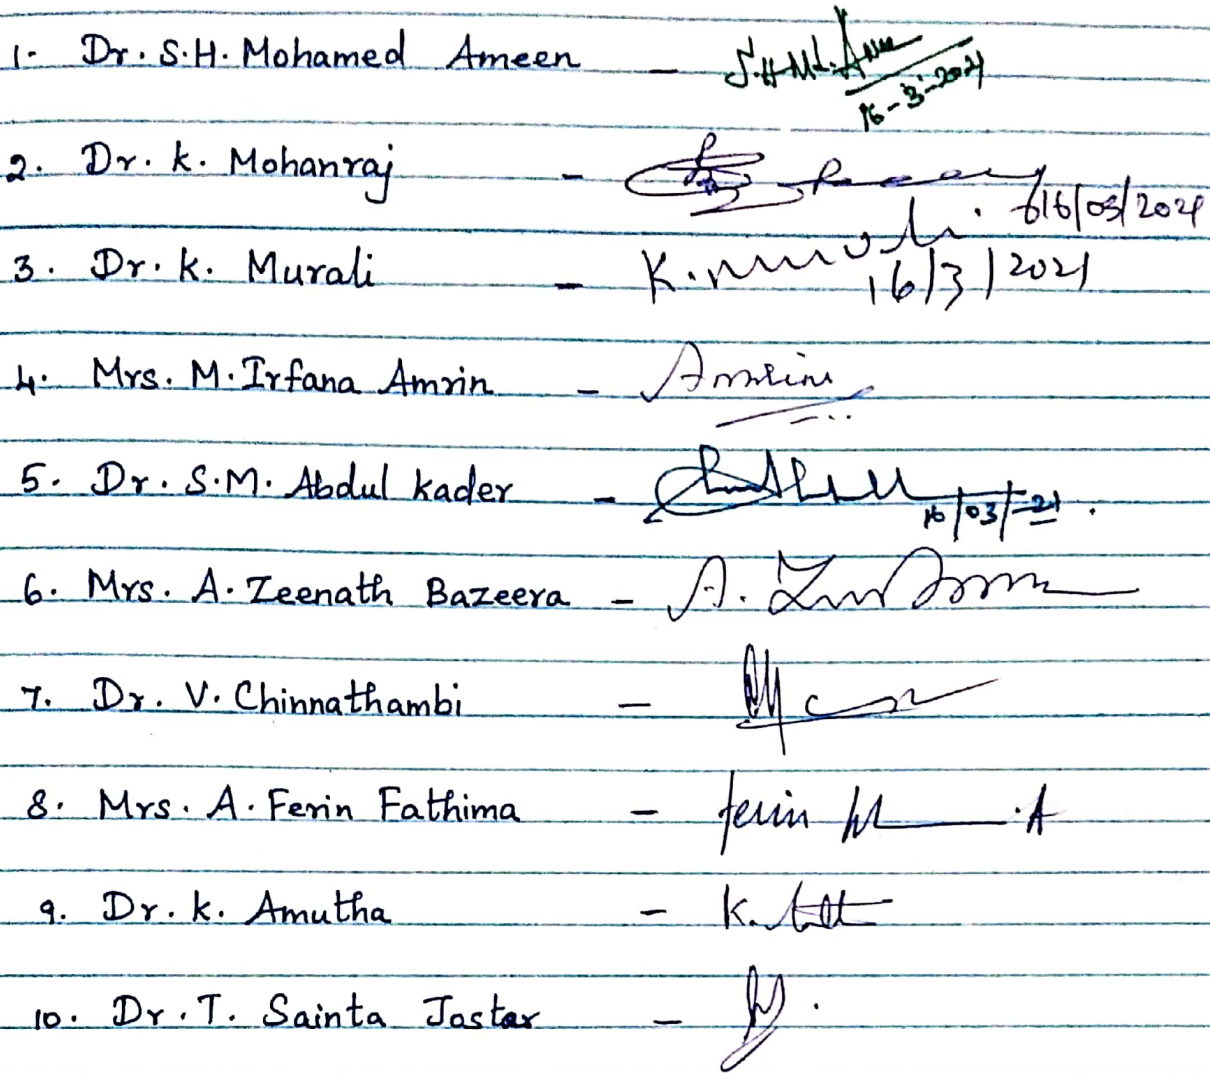 1- Dr. S.H. Mohamed Ameen - S.H.Md. 16-3-2021
2. Dr. K. Mohanraj - 16/03/2021
3. Dr. K. Murali - K. Murali 16/3/2021
4. Mrs. M. Irfana Amrin - Amrin
5. Dr. S.M. Abdul Kader - 16/03/21
6. Mrs. A. Zeenath Bazeera - A.
7. Dr. V. Chinnathambi -
8. Mrs. A. Ferin Fathima - ferin A
9. Dr. K. Amutha - K.
10. Dr. T. Sainta Jostar -